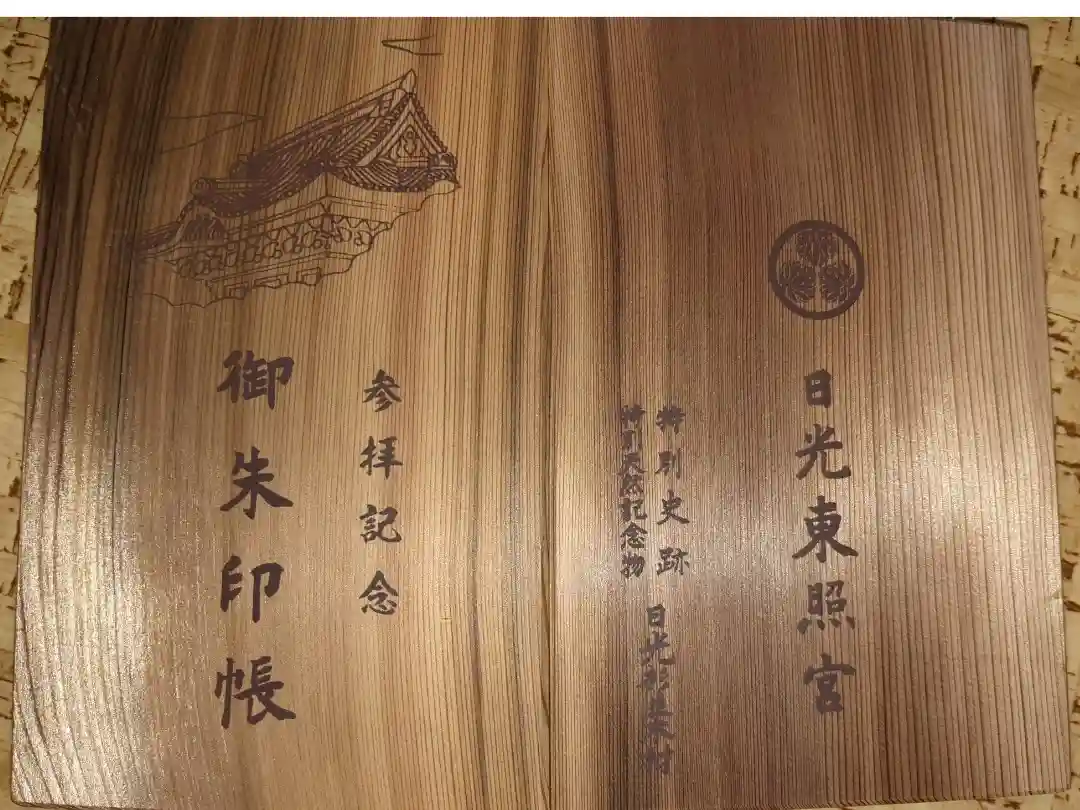 日光東照宮
特別史跡
特別天然記念物
日光杉並木材
参拝記念
御朱印帳